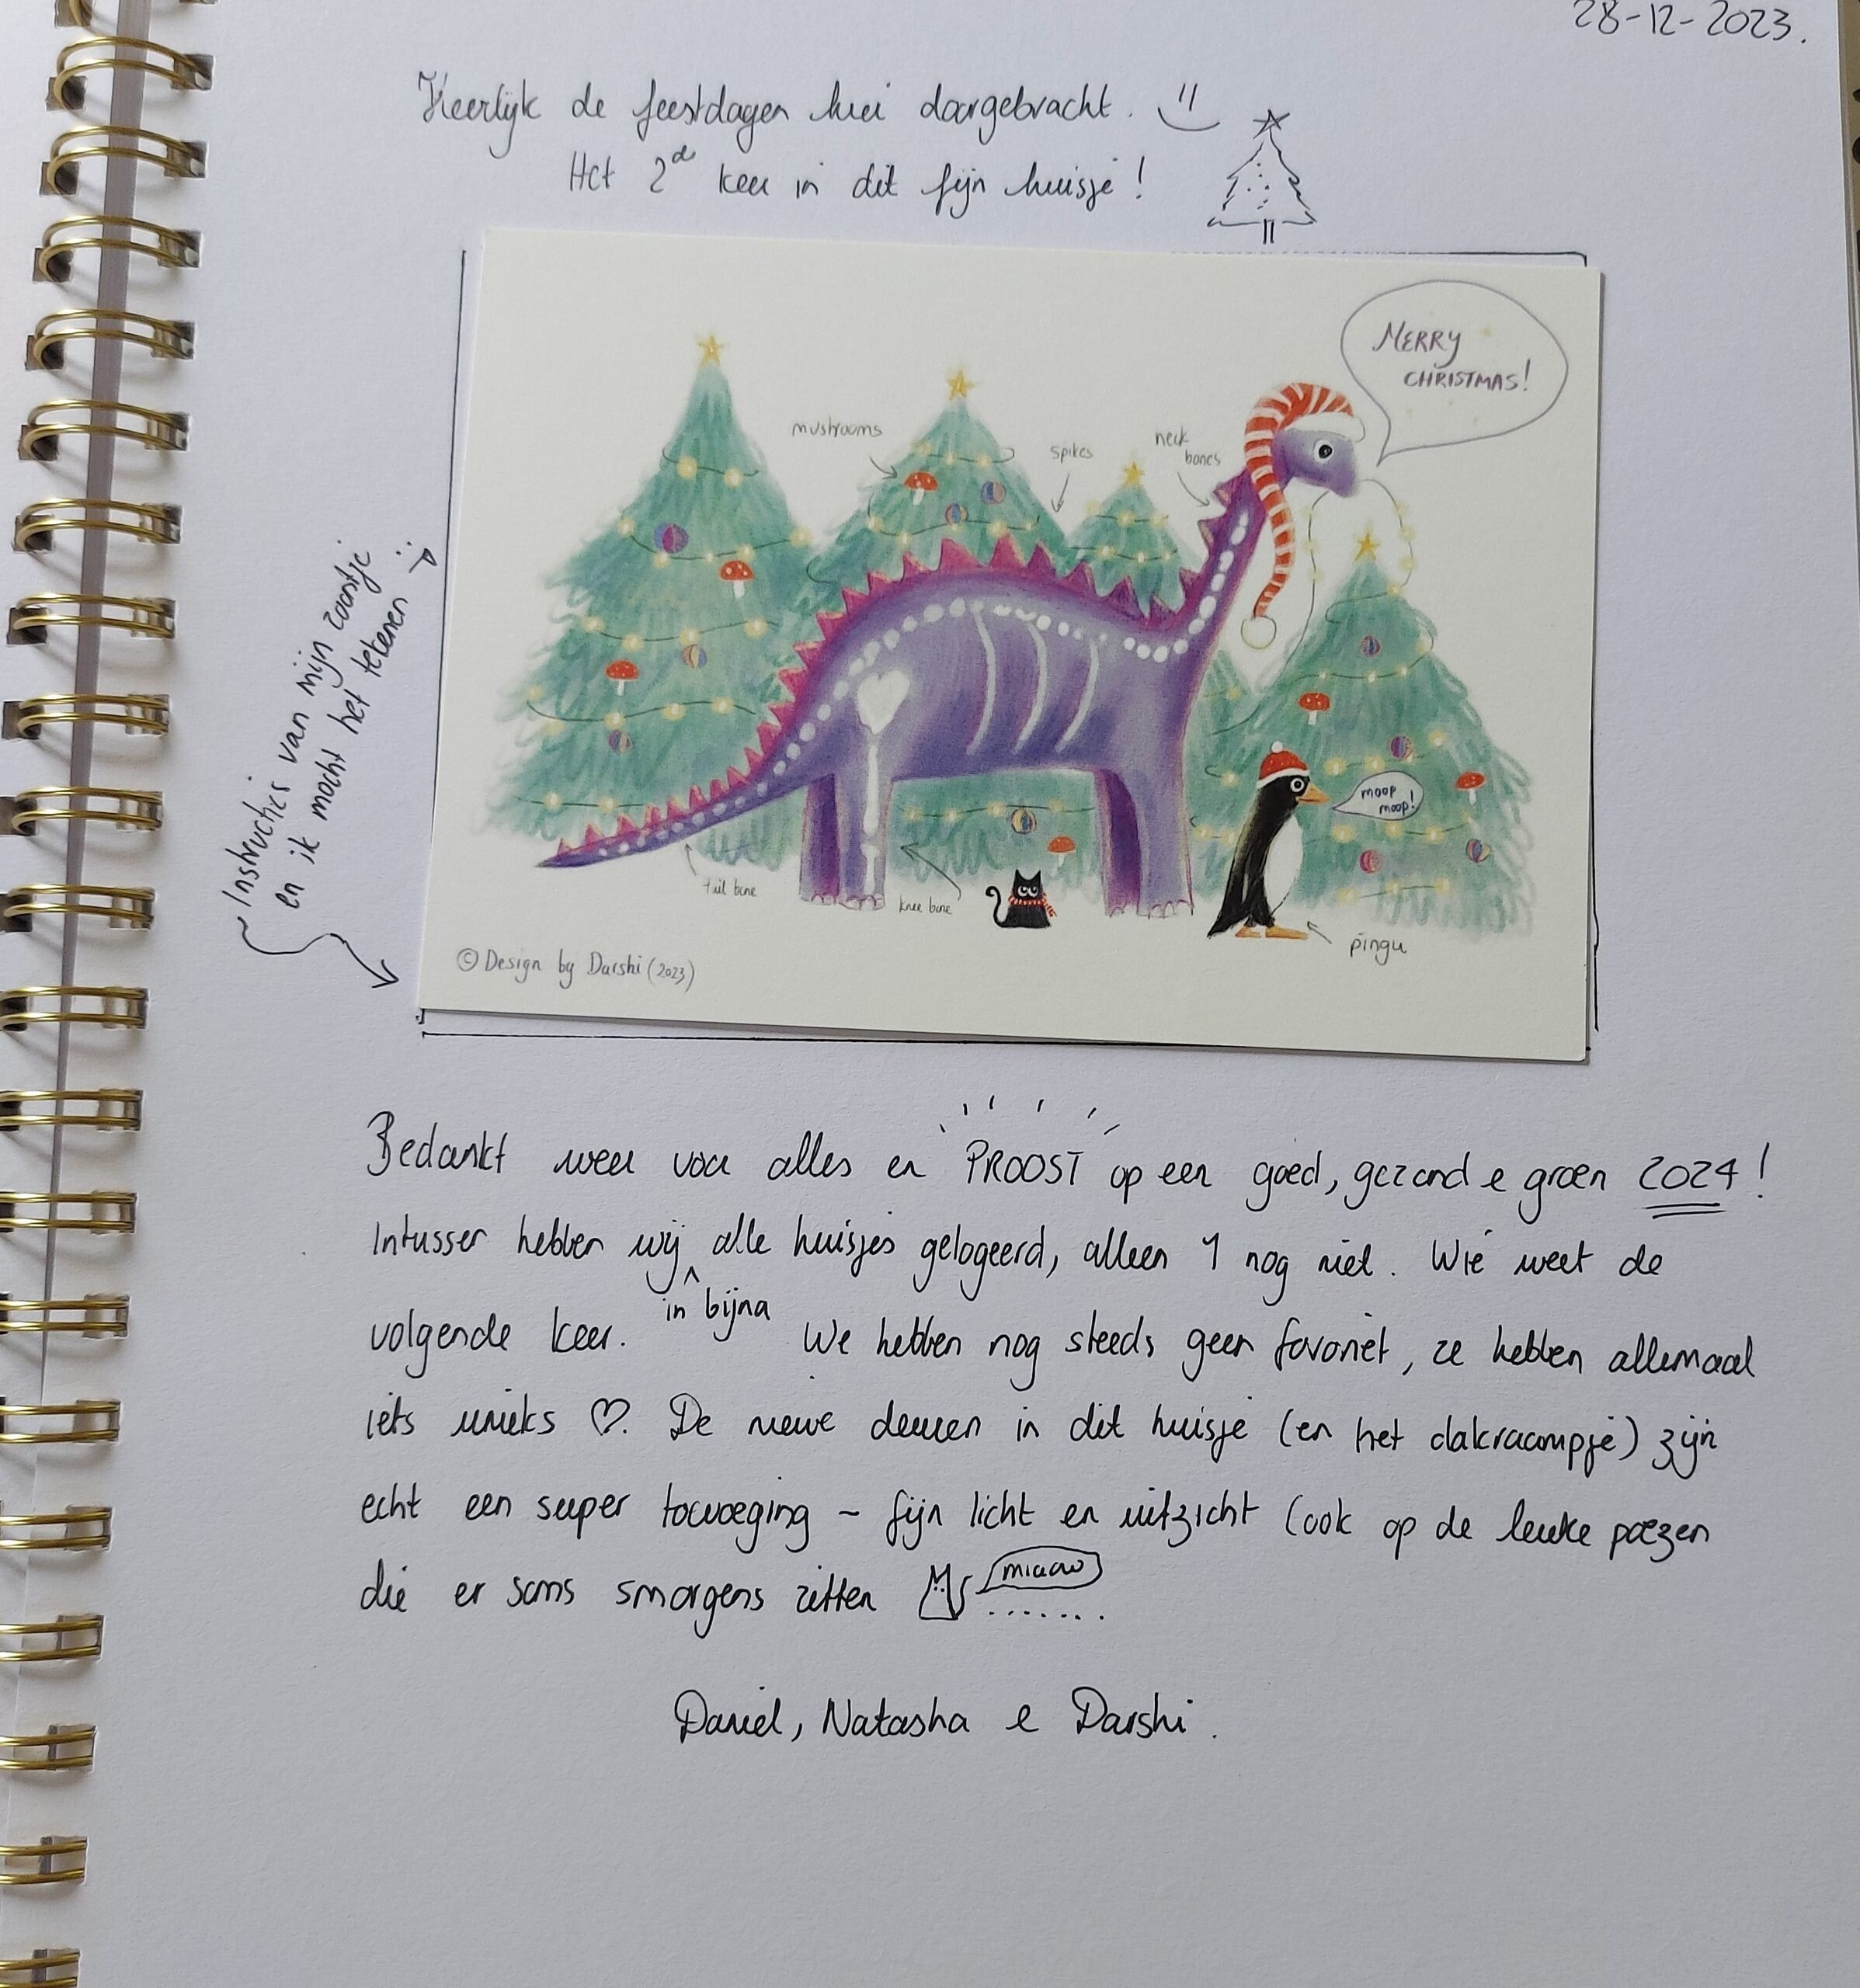 28-12-2023.
Heerlijk de feestdagen hier doorgebracht.
Het 2de keer in dit fijn huisje!
MERRY
CHRISTMAS!
mushrooms
spikes
neck
bones
Instructies van mijn zoontje
en ik mocht het tekenen
moop
moop!
tail bone
knee bone
pingu
© Design by Darshi (2023)
Bedankt weer voor alles en PROOST op een goed, gezond e groen 2024!
Intussen hebben wij in bijna alle huisjes gelogeerd, alleen 1 nog niet. Wie weet de
volgende keer. We hebben nog steeds geen favoriet, ze hebben allemaal
iets unieks ♡. De nieuwe deuren in dit huisje (en het dakraampje) zijn
echt een super toevoeging ~ fijn licht en uitzicht (ook op de leuke poezen
die er soms smorgens zitten
miaow
Daniel, Natasha e Darshi.